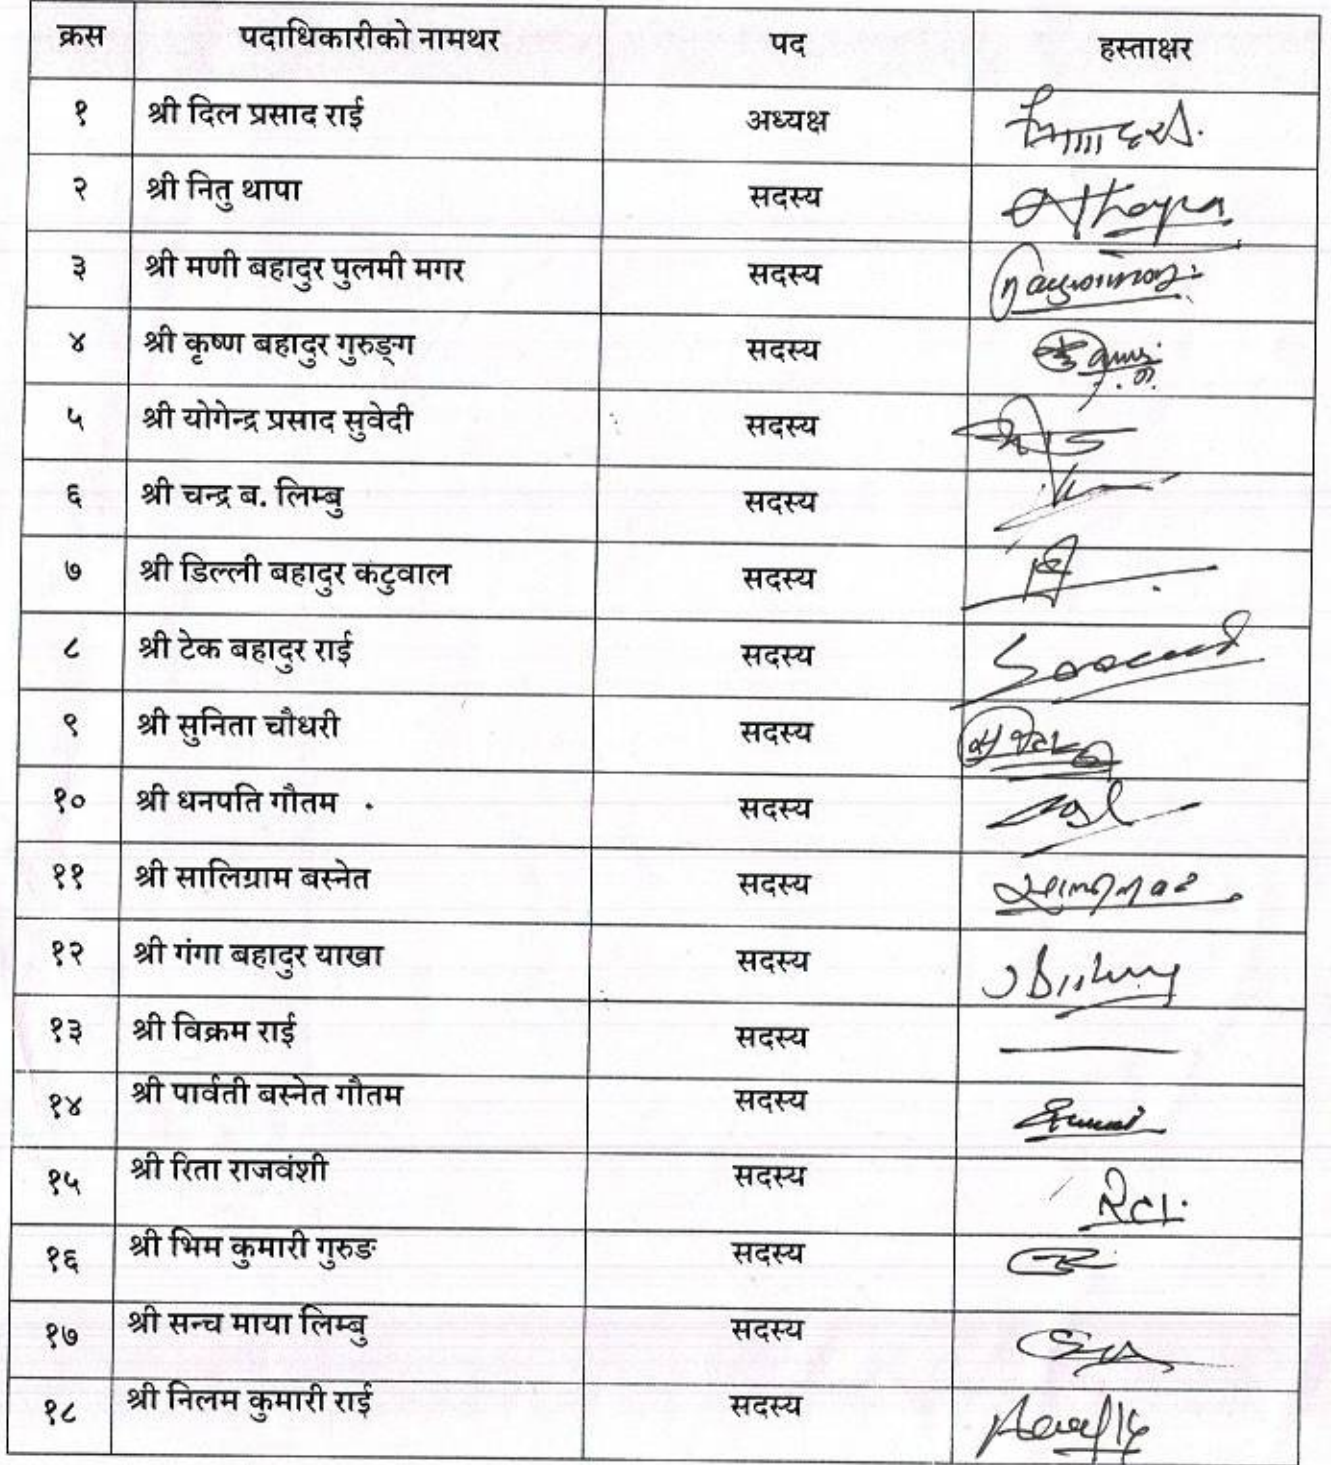 क्रस पदाधिकारीको नामथर पद हस्ताक्षर
१ श्री दिल प्रसाद राई अध्यक्ष
२ श्री नितु थापा सदस्य Nthapa
३ श्री मणी बहादुर पुलमी मगर सदस्य
४ श्री कृष्ण बहादुर गुरुङ्ग सदस्य
५ श्री योगेन्द्र प्रसाद सुवेदी सदस्य
६ श्री चन्द्र ब. लिम्बु सदस्य
७ श्री डिल्ली बहादुर कटुवाल सदस्य
८ श्री टेक बहादुर राई सदस्य
९ श्री सुनिता चौधरी सदस्य
१० श्री धनपति गौतम सदस्य
११ श्री सालिग्राम बस्नेत सदस्य
१२ श्री गंगा बहादुर याखा सदस्य
१३ श्री विक्रम राई सदस्य
१४ श्री पार्वती बस्नेत गौतम सदस्य
१५ श्री रिता राजवंशी सदस्य
१६ श्री भिम कुमारी गुरुङ सदस्य
१७ श्री सन्च माया लिम्बु सदस्य
१८ श्री निलम कुमारी राई सदस्य